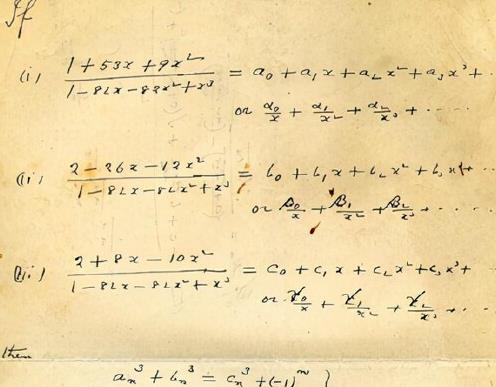 If
(i) (1 + 53x + 9x²)/(1 - 82x - 82x² + x³) = a₀ + a₁x + a₂x² + a₃x³ + ·
or α₀/x + α₁/x² + α₂/x³ + · · · ·
(ii) (2 - 26x - 12x²)/(1 - 82x - 82x² + x³) = b₀ + b₁x + b₂x² + b₃x³ + · · · ·
or β₀/x + β₁/x² + β₂/x³ + · · · ·
(iii) (2 + 8x - 10x²)/(1 - 82x - 82x² + x³) = c₀ + c₁x + c₂x² + c₃x³ + · · · ·
or γ₀/x + γ₁/x² + γ₂/x³ + · · ·
then
aₙ³ + bₙ³ = cₙ³ + (-1)ⁿ }